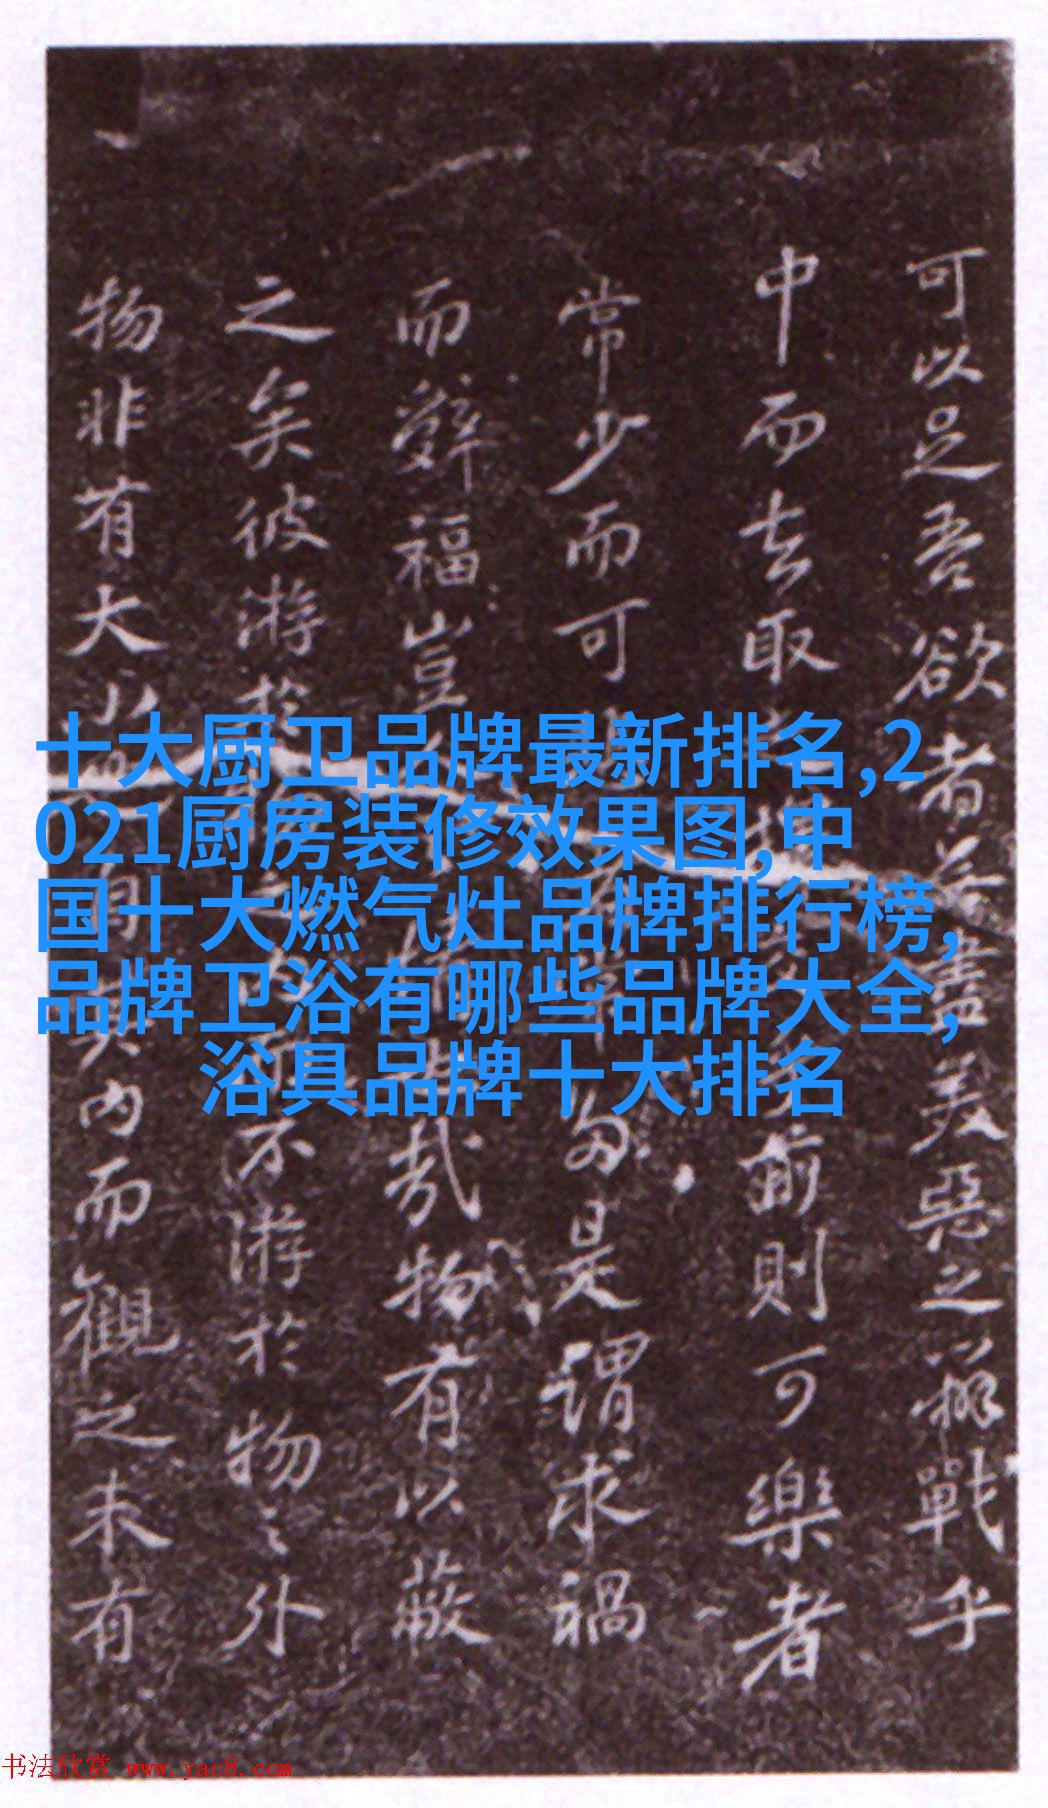 十大厨卫品牌最新排名,2
021厨房装修效果图,中
国十大燃气灶品牌排行榜,
品牌卫浴有哪些品牌大全,
浴具品牌十大排名
可以足吾欲者盡美惡之辨戰乎
中而去取前則可樂者
常少而可多是謂求禍
而辭福豈哉物有以蔽
之矣彼游於不游於物之外
物非有大小其内而觀之未有
书法欣赏 www.yac8.com